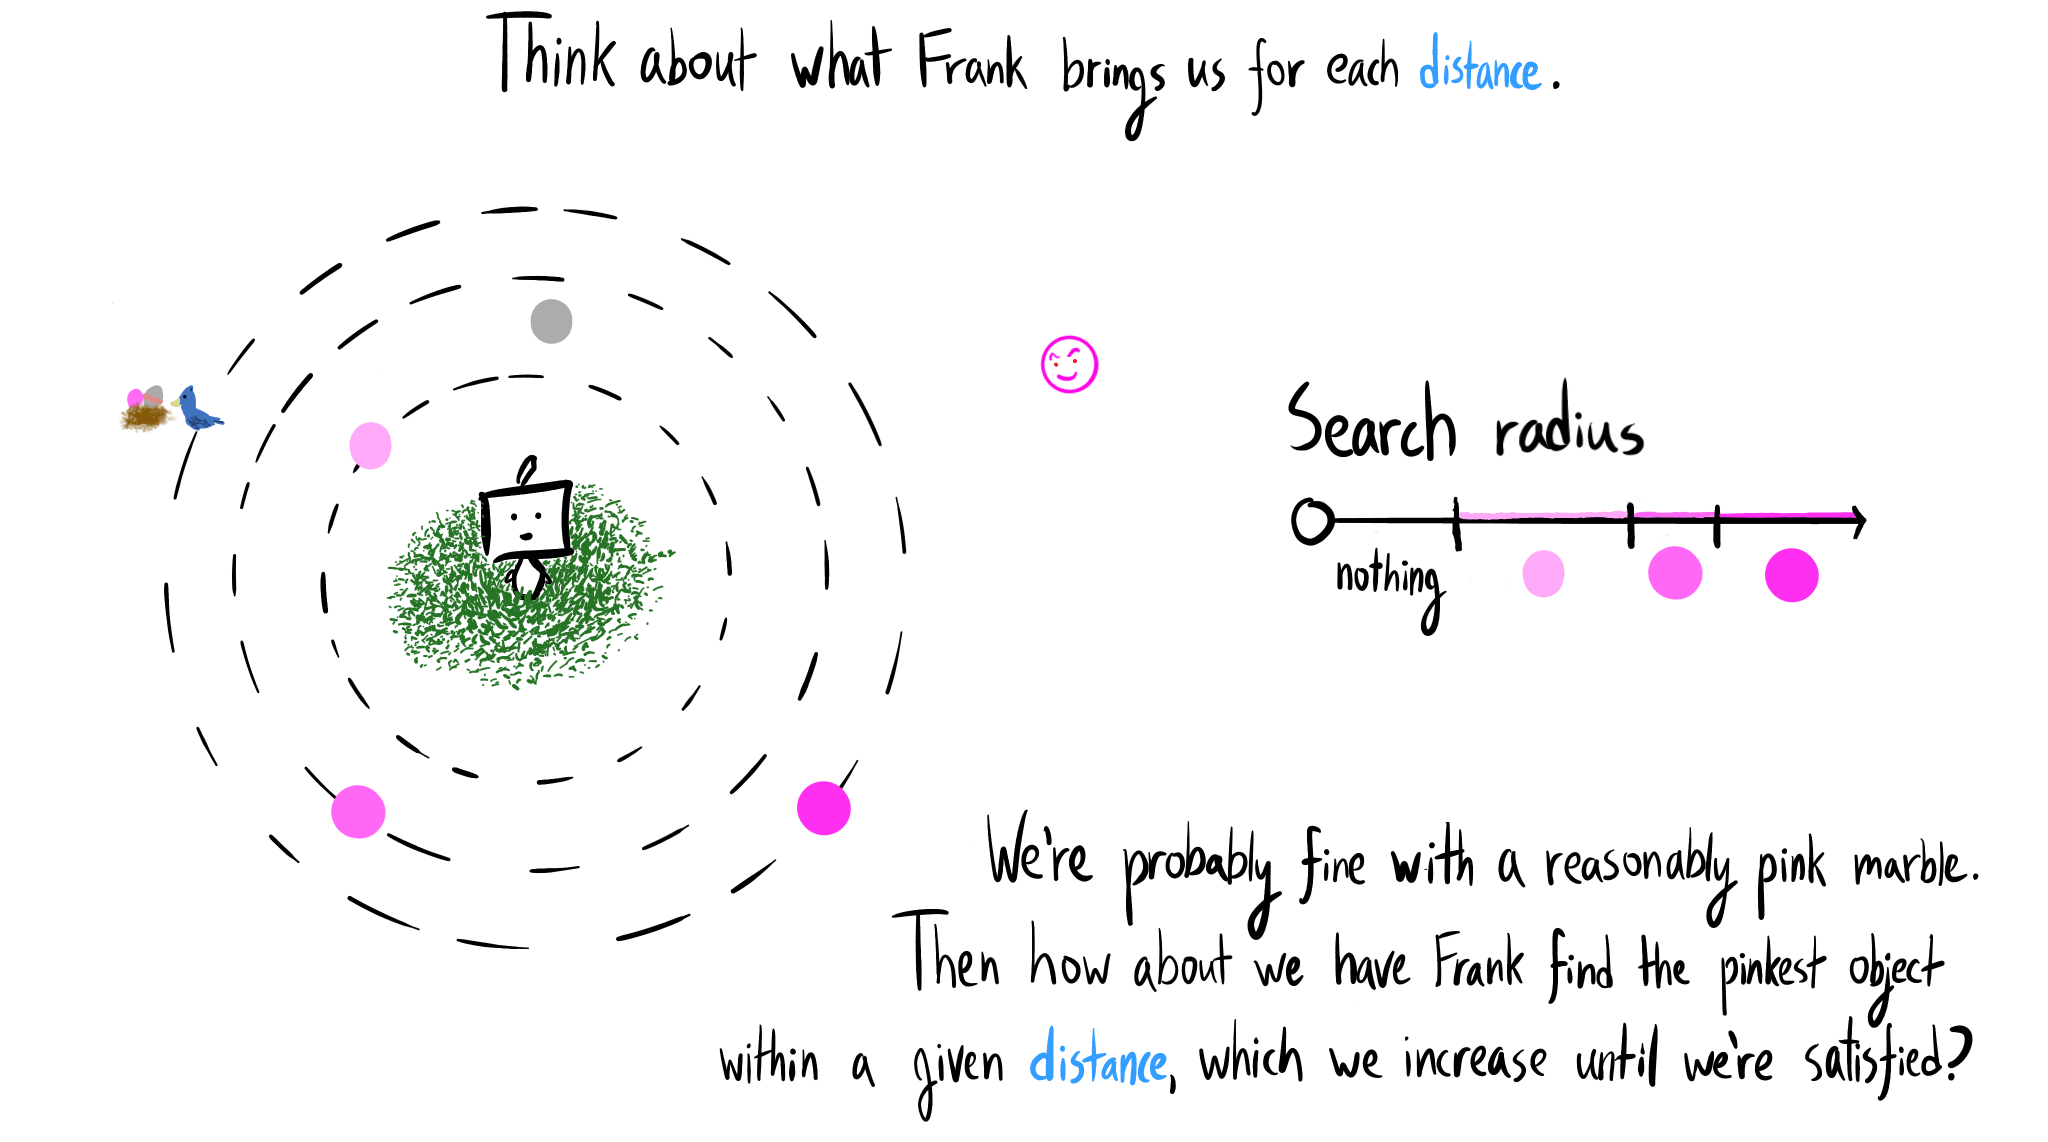 Think about what Frank brings us for each distance.
Search radius
nothing
We're probably fine with a reasonably pink marble.
Then how about we have Frank find the pinkest object
within a given distance, which we increase until we're satisfied?